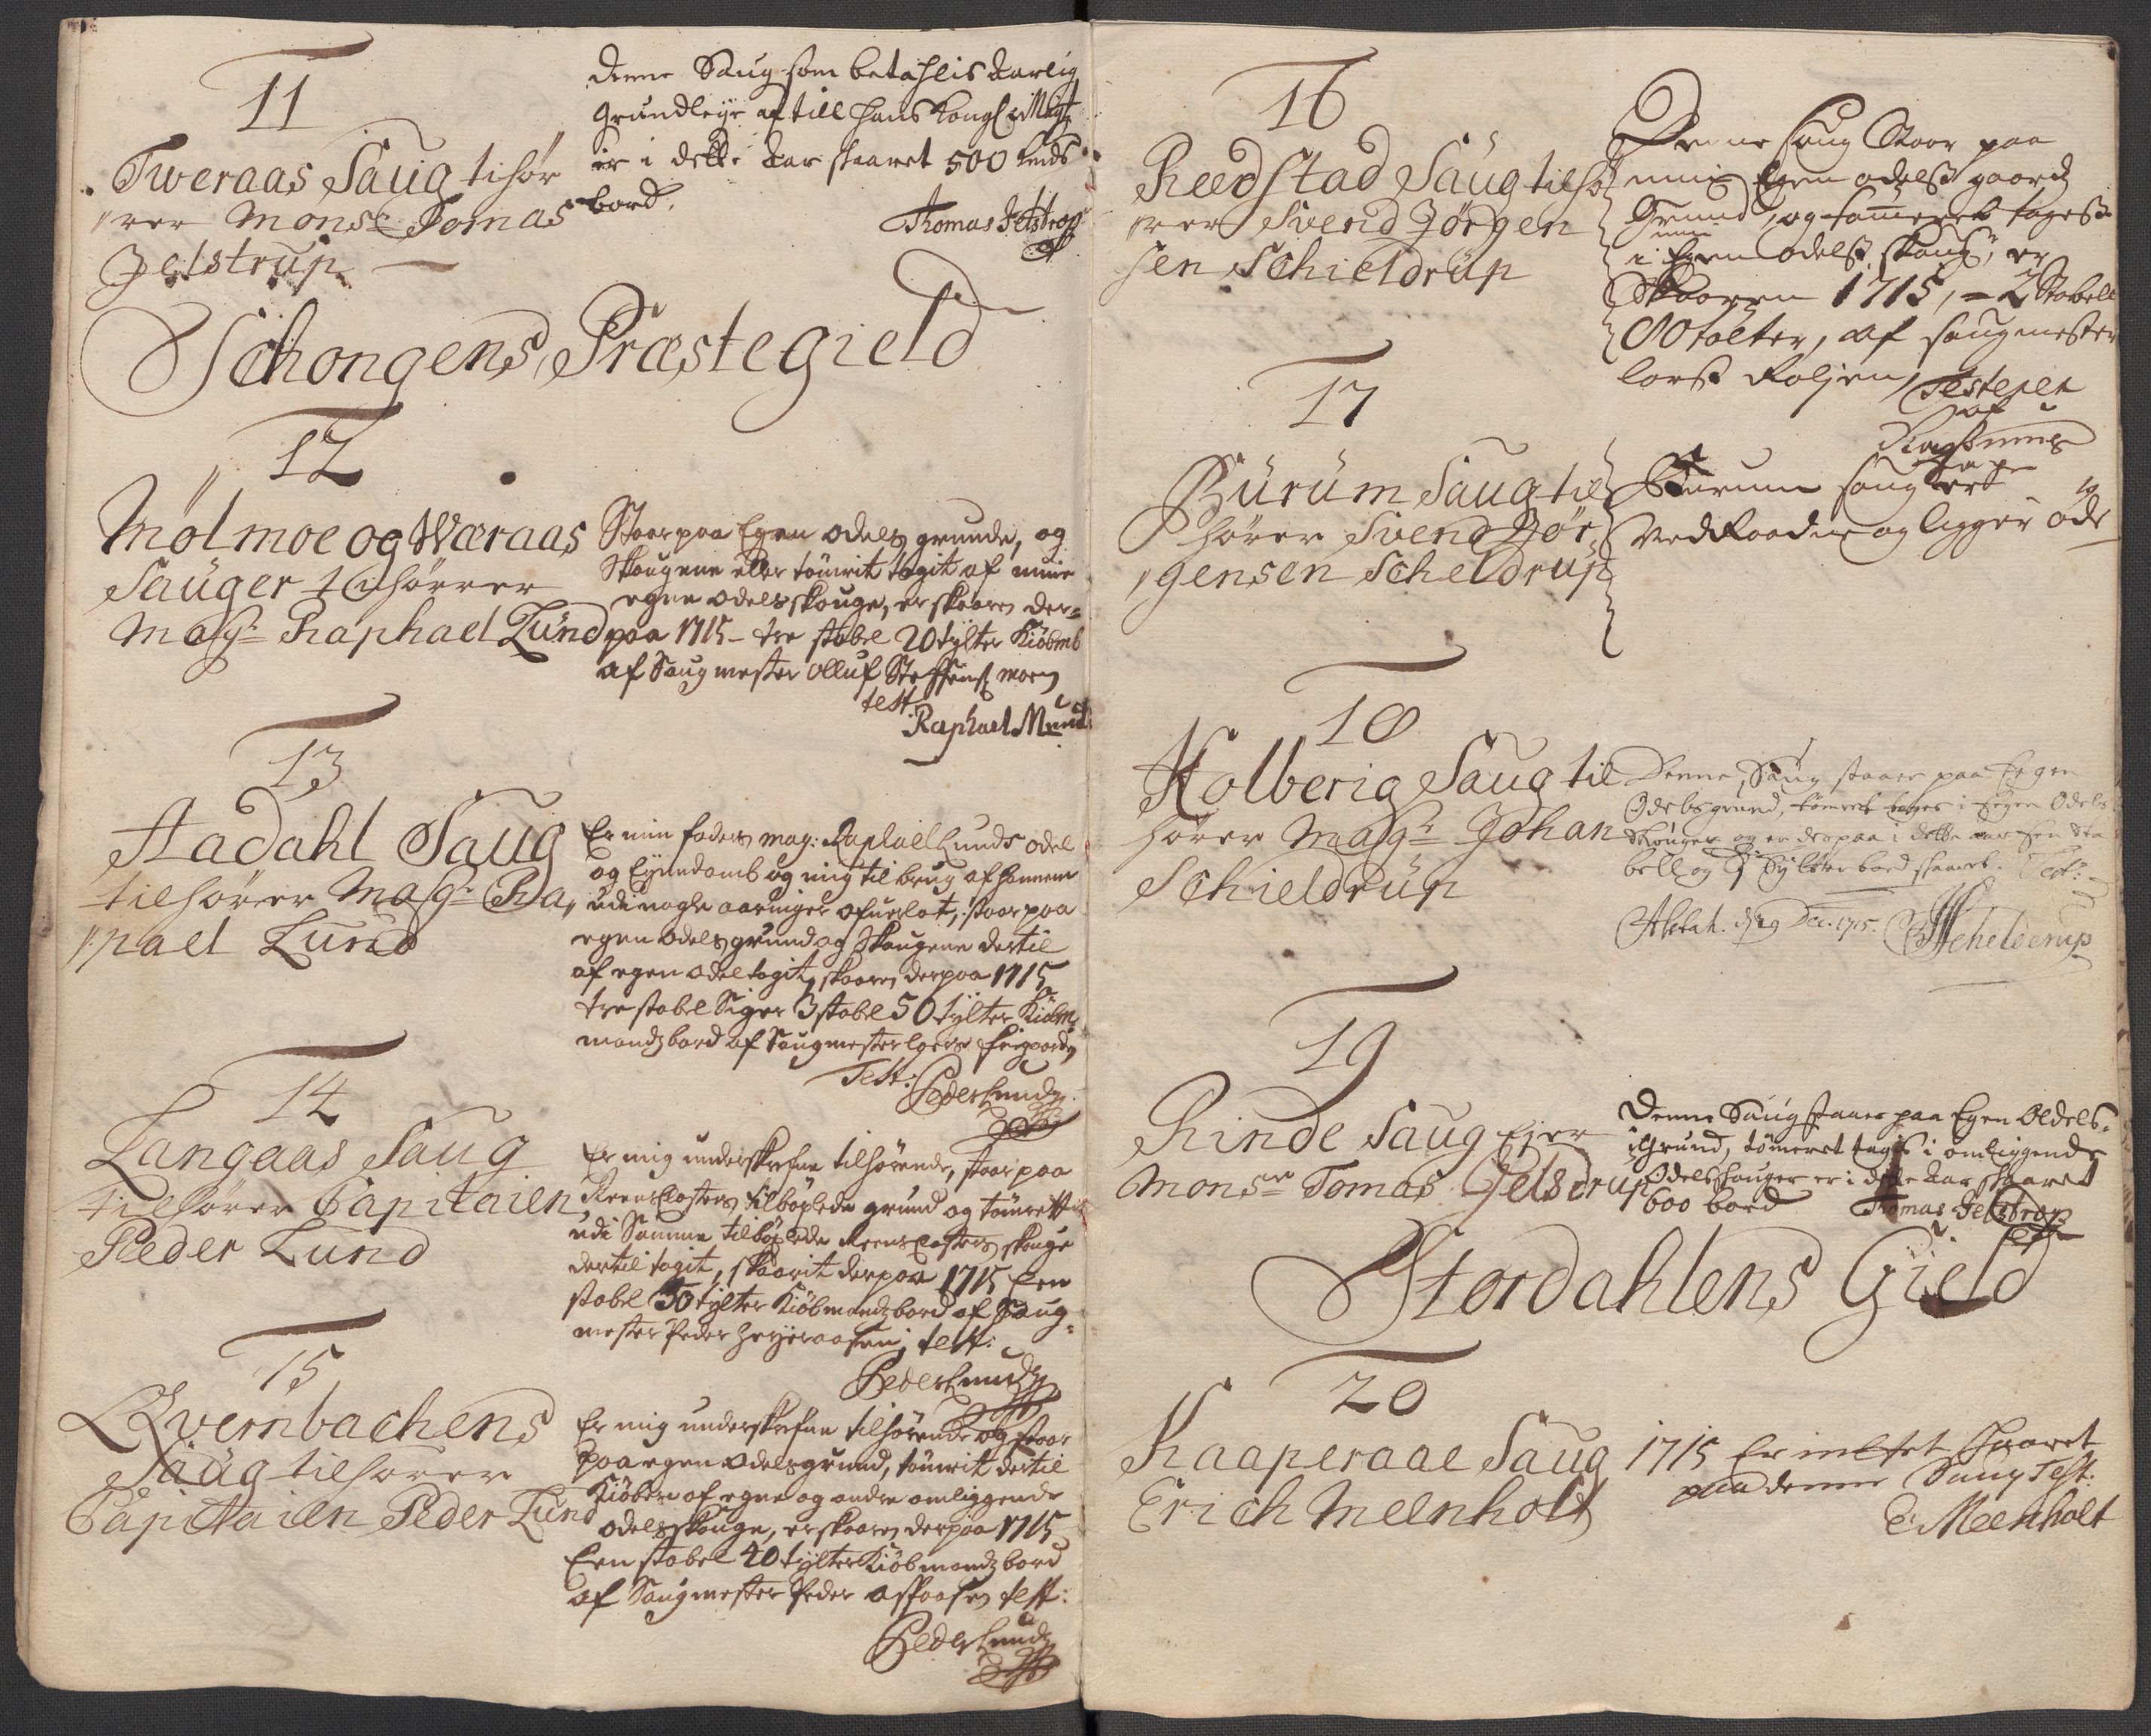 11
Tweraas Saug tilhør
rer Monsr Tomas
Jelstrup
Denne Saug som betahlis aarlig
grundleye af till hans Kongl: Mayt
er i dette aar skaaret 500 huds
bord.
Thomas Jelstrop
Schongens Præstegield
12
Mølmoe og Wæraas
Sauger tilhørrer
Magr Raphael Lund
Staar paa Egen odels grunde, og
Skougene eller tømrit tagit af mine
egne odels skouge, er skaaren der-
paa 1715 - tre stabel 20 tylter Kiøbmb
af Saugmester Olluf Steffens: moen
test.
Raphael Mund
13
Aadahl Saug
tilhører Magr Ra,
,,pael Lund
Er min faders mag: Raphael Lunds odel
og Eyendomb og mig til brug af hannem
udi nogle aaringer ofuerlat, staar paa
egen odels grund og Skougene dertil
af egen odel tagit, skaaren derpaa 1715
tre stabel Siger 3 stabel 50 tylter Kiøbm
mandz bord af Saugmester
Test: Peder Lund
14
Langaas Saug
tilhører Capitaien
Peder Lund
Er mig underskrefne tilhørende, staar paa
Reens Closters tilbøxlede grund og tømret
udi Samme tilbøxlede Reens Closters skouge
dertil tagit, skaarit derpaa 1715 Een
stabel 50 tylter Kiøbmandz bord af Saug-
mester Peder test:
Peder Lund
15
Qvernbachens
Saug tilhører
Capitaien Peder Lund
Er mig underskrefne tilhørende og staar
paa egen odels grund, tømrit dertil
Kiøben af egne og andre omliggende
odels skouge, er skaaren derpaa 1715
Een stabel 40 tylter Kiøbmandz bord
af Saugmester Peder Aspaasen test:
Peder Lund
16
Reedstad Saug tilhø
rer Svend Jørgen
sen Schieldrup
Denne saug Staar paa
min Egen odelss gaard
Grund, og tømmeret tages
i min Egen odelss skoug, er
Skaaren 1715, = 2 Stabell
00 tolter, af saugmester
Lars Roljen, Testerer
af
Rasmus
17
Burum Saug til
hører Svend Jør,
,gensen Scheldrup
Burum saug er
Ned Raaden og ligger øde
18
Holberig Saug til
hører Magr Johan
Schieldrup
Denne Saug staaer paa Eegen
Odelsgrund, tømret tages i Eegen Odels
Skouger og er derpaa i dette aar Een Sta
bell og 9 Tylter bord skaaret. Test:
d: 29 Dec: 1715. Schelderup
19
Rinde Saug Ejer
Monsr Tomas Jelsdrup
Denne Saug staaer paa Egen Oldels-
Grund, tømeret tages i omliggende
Odels Skouger er i dette Aar skaaret
600 bord Thomas Jelstrop
Stordahlens Gield
20
Kaaperaae Saug
Erich Meenholt
1715 Er intet skaaret
paa denne Saug Test:
E: Meenholt